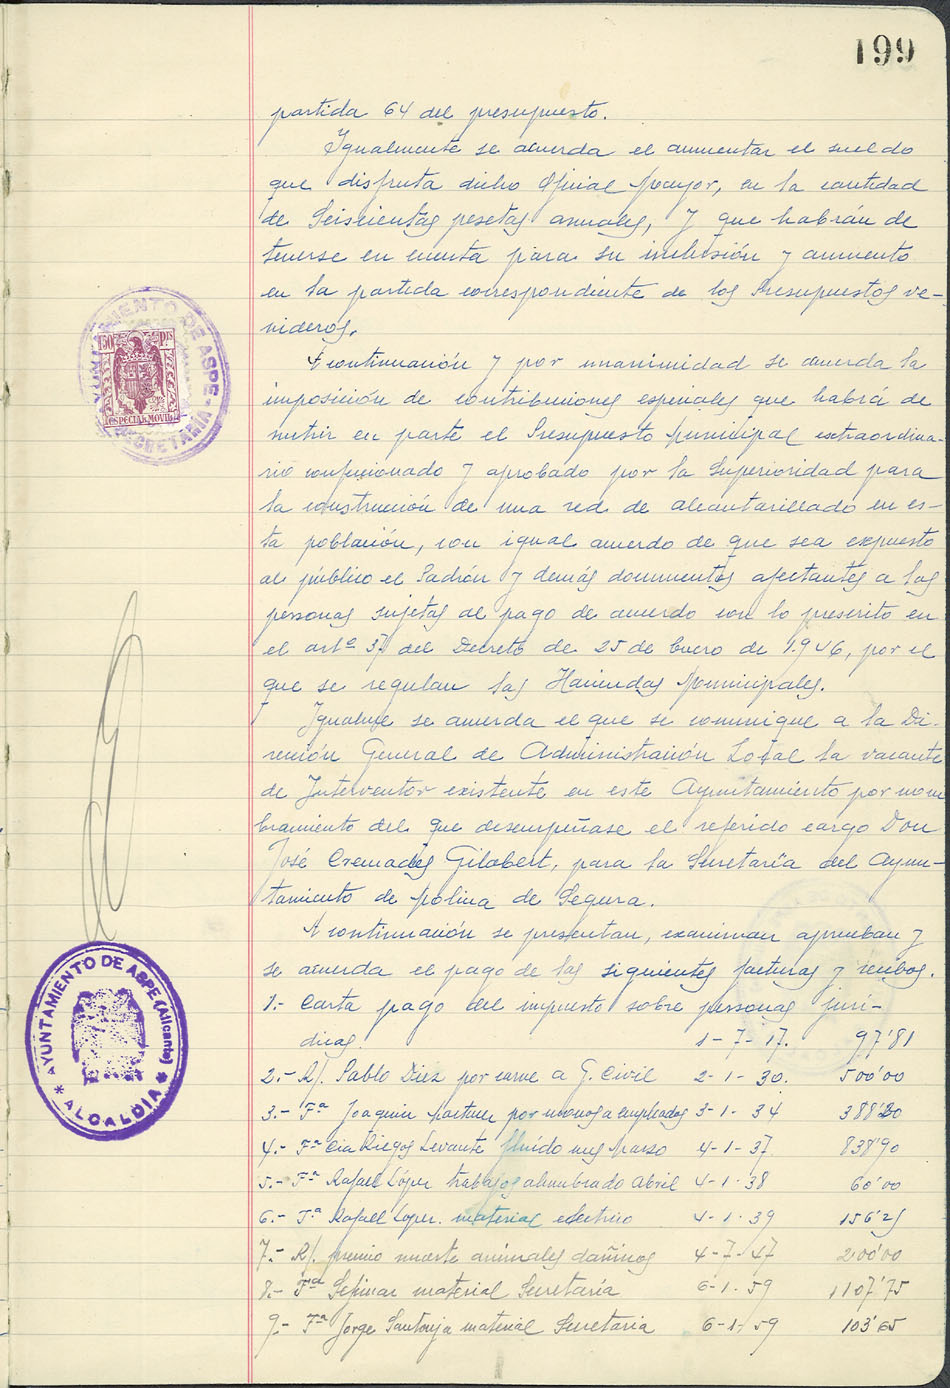 199
partida 64 del presupuesto.
Igualmente se acuerda el aumentar el sueldo
que disfruta dicho Oficial Mayor, en la cantidad
de Seiscientas pesetas anuales, y que habrán de
tenerse en cuenta para su inclusión y aumento
en la partida correspondiente de los Presupuestos ve-
nideros.
A continuación y por unanimidad se acuerda la
imposición de contribuciones especiales que habrá de
nutrir en parte el Presupuesto municipal extraordina-
rio confeccionado y aprobado por la Superioridad para
la construcción de una red de alcantarillado en es-
ta población, con igual acuerdo de que sea expuesto
al público el Padrón y demás documentos afectantes a las
personas sujetas al pago de acuerdo con lo prescrito en
el artº 37 del Decreto de 25 de Enero de 1.946, por el
que se regulan las Haciendas Municipales.
Igualme se acuerda el que se comunique a la Di-
rección General de Administración Local la vacante
de Interventor existente en este Ayuntamiento por nom
bramiento del que desempeñase el referido cargo Don
José Cremades Gilabert, para la Secretaría del Ayun-
tamiento de Molina de Segura.
A continuación se presentan, examinan aprueban y
se acuerda el pago de las siguientes facturas y recibos.
1.- Carta pago del impuesto sobre personas jurí-
dicas. 1-7-17. 97'81
2.- R/. Pablo Diez por carne a G. Civil 2-1-30. 500'00
3.- Fª Joaquin por monos a empleados 3-1-34 388'20
4.- Fª Cia Riegos Levante fluído mes Marzo 4-1-37 838'90
5.- Fª Rafael López trabajos alumbrado Abril 4-1-38 60'00
6.- Fª Rafael López. material electrico 4-1-39 156'25
7.- R/. premio muerte animales dañinos 4-7-47 200'00
8.- Fª Sepinar material Secretaría 6-1-59 1107'75
9.- Fª Jorge Santonja material Secretaria 6-1-59 103'65
AYUNTAMIENTO DE ASPE
SECRETARÍA
1'50 Pts
ESPECIAL MOVIL
AYUNTAMIENTO DE ASPE (Alicante)
* ALCALDIA *